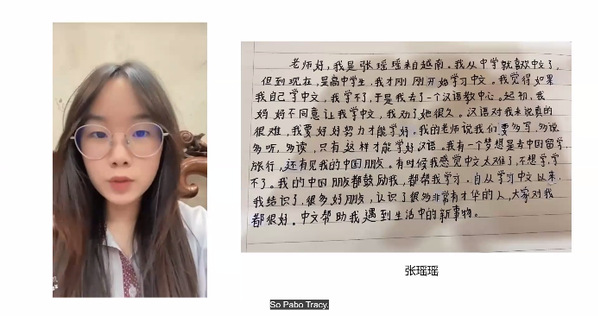 老师好，我是张瑶瑶来自越南。我从中学就喜欢中文了，
但到现在，是高中学生，我才刚刚开始学习中文。我觉得如果
我自己学中文，我学不了，于是我去了一个汉语教中心。起初，我
妈妈不同意让我学中文，我劝了她很久。汉语对我来说真的
很难，我要好好努力才能学好，我的老师说我们要多写，多说
多听，多读，只有这样才能学好汉语。我有一个梦想是去中国留学
旅行，还有见我的中国朋友。有时候我感觉中文太难了，不想学，学
不了。我的中国朋友都鼓励我，都帮我学习。自从学习中文以来，
我结识了很多好朋友，认识了很多非常有才华的人，大家对我
都很好。中文帮助我遇到生活中的新事物。
张瑶瑶
So Pabo Tracy.